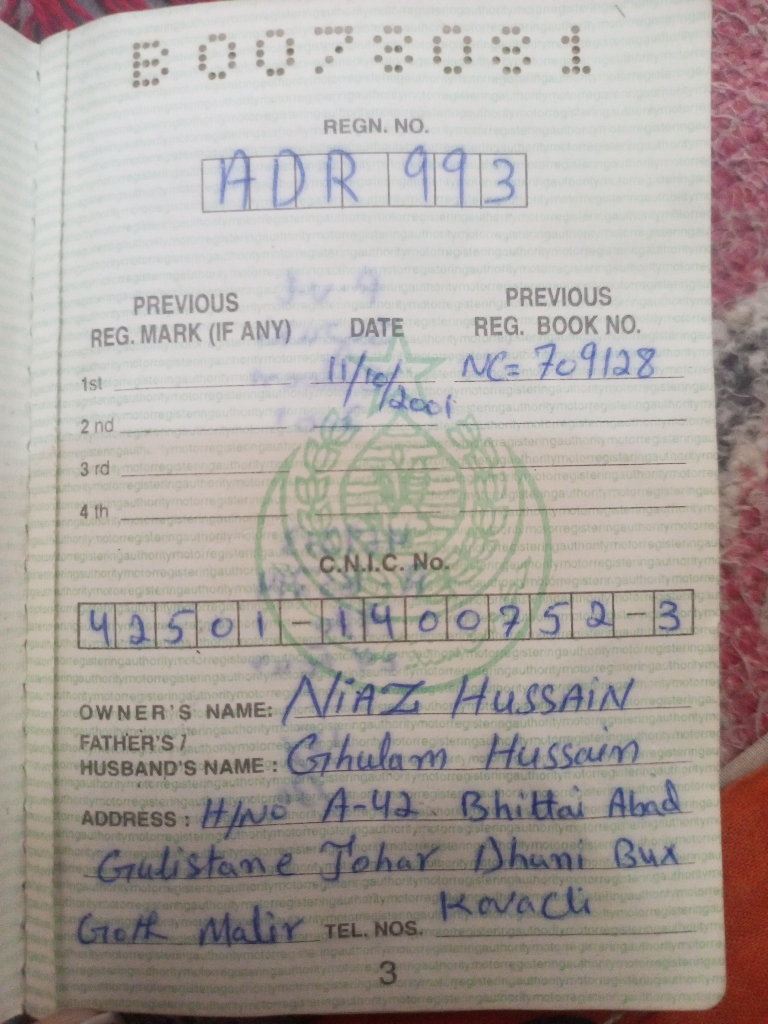 B0073081
REGN. NO.
ADR 993
PREVIOUS REG. MARK (IF ANY) DATE PREVIOUS REG. BOOK NO.
1st 11/10/2001 NC= 709128
2 nd
3 rd
4 th
C.N.I.C. No.
42501-1400752-3
OWNER'S NAME: NiAZ HUSSAiN
FATHER'S /
HUSBAND'S NAME : Ghulam Hussain
ADDRESS : H/NO A-42 Bhittai Abad
Gulistane Johar Dhani Bux
Goth Malir TEL. NOS. Karachi
3